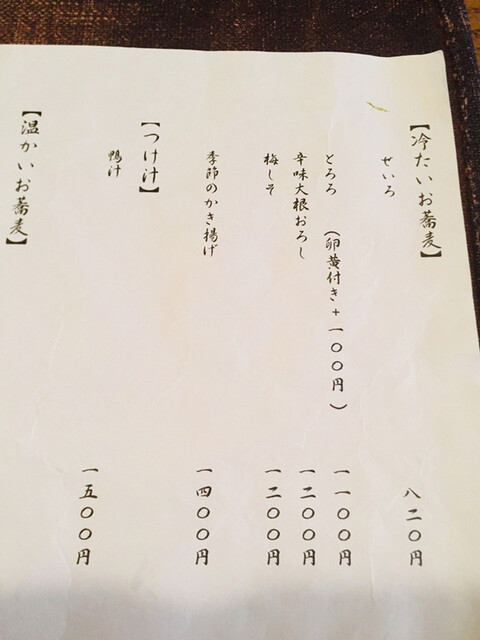 【冷たいお蕎麦】
せいろ 八二〇円
とろろ (卵黄付き+一〇〇円) 一一〇〇円
辛味大根おろし 一二〇〇円
梅しそ 一二〇〇円
季節のかき揚げ 一四〇〇円
【つけ汁】
鴨汁 一五〇〇円
【温かいお蕎麦】